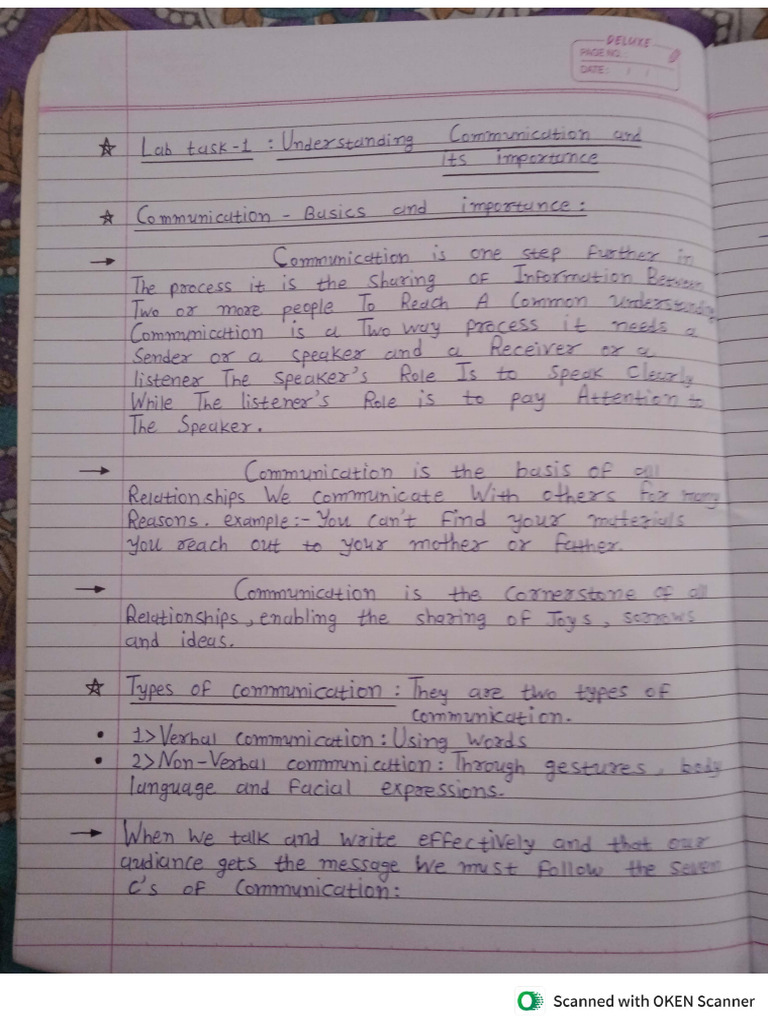 DELUXE
PAGE NO.:
DATE: / /
☆ Lab task-1 : Understanding Communication and
its importance
☆ Communication - Basics and importance :
→ Communication is one step further in
The process it is the sharing of Information Between
Two or more people To Reach A Common Understanding
Communication is a Two way process it needs a
Sender or a speaker and a Receiver or a
listener The speaker's Role Is to speak clearly
While The listener's Role is to pay Attention to
The Speaker.
→ Communication is the basis of all
Relationships We communicate With others for many
Reasons. example:- You can't find your materials
you reach out to your mother or father.
→ Communication is the cornerstone of all
Relationships, enabling the sharing of Joys, sorrows
and ideas.
☆ Types of communication : They are two types of
communication.
• 1> Verbal communication : Using words
• 2> Non-Verbal communication : Through gestures, body
language and facial expressions.
→ When we talk and write effectively and that our
audiance gets the message we must follow the seven
C's of communication:
Scanned with OKEN Scanner